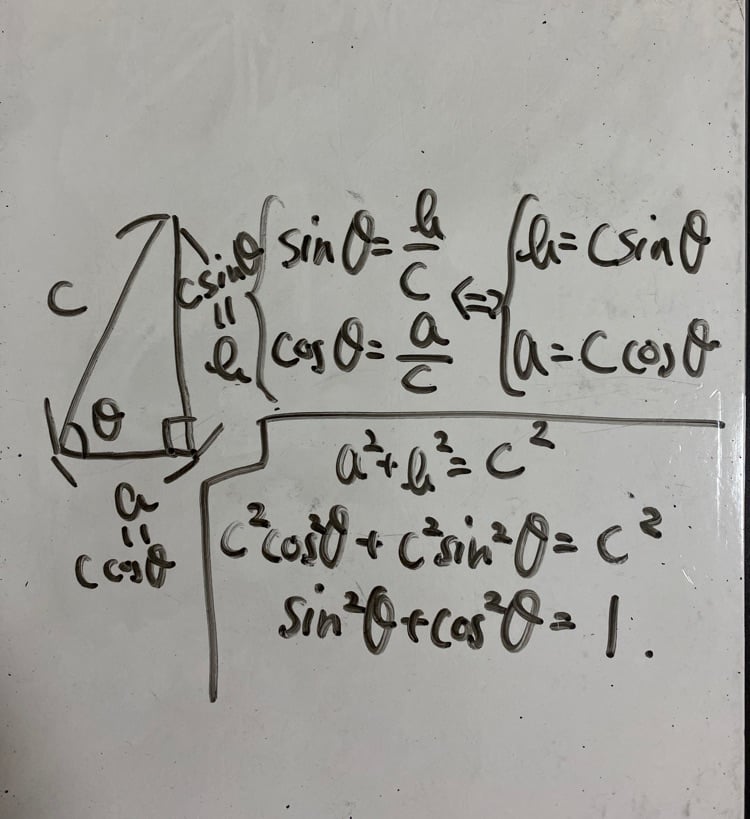 c
c sinθ
=
b
θ
a
=
c cosθ
sinθ = b/c ⇔ b = c sinθ
cosθ = a/c a = c cosθ
a² + b² = c²
c²cos²θ + c²sin²θ = c²
sin²θ + cos²θ = 1.